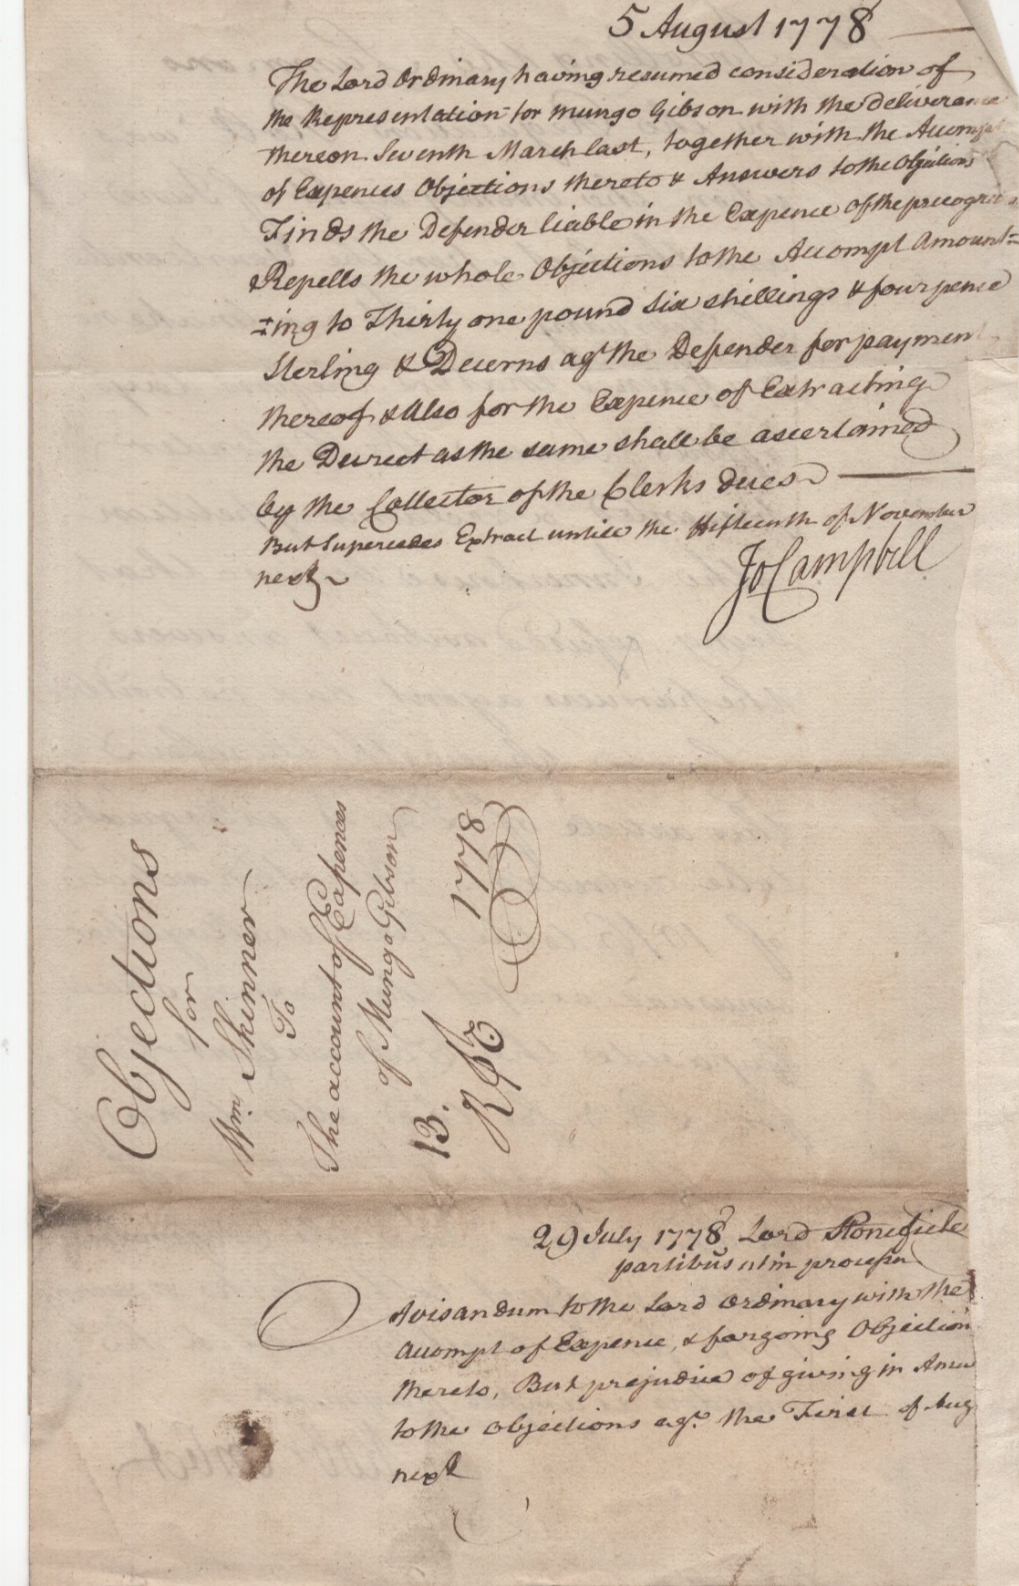 5 August 1778
The Lord Ordinary having resumed consideration of
the Representation for Mungo Gibson with the deliverance
thereon Seventh March last, together with the Accompt
of Expences Objections thereto & Answers to the Objections
Finds the Defender liable in the Expence of the precogni
Repells the whole Objections to the Accompt Amount=
=ing to Thirty one pound Six shillings & four pence
Sterling & Decerns agt the Defender for payment
thereof & Also for the Expence of Extracting
the Decreet as the same shall be ascertained
by the Collector of the Clerks dues
But Supercedes Extract untill the Fifteenth of November
next
Jo Campbell
Objections
for
Wm. Skinner
To
The account of Expences
of Mungo Gibson
13. 1778
29 July 1778 Lord Stonefield
partibus ut in
Avisandum to the Lord Ordinary with the
Accompt of Expence, & forgoing Objection
thereto, But prejudice of giving in Answ
to the Objections agt. the First of Aug
next